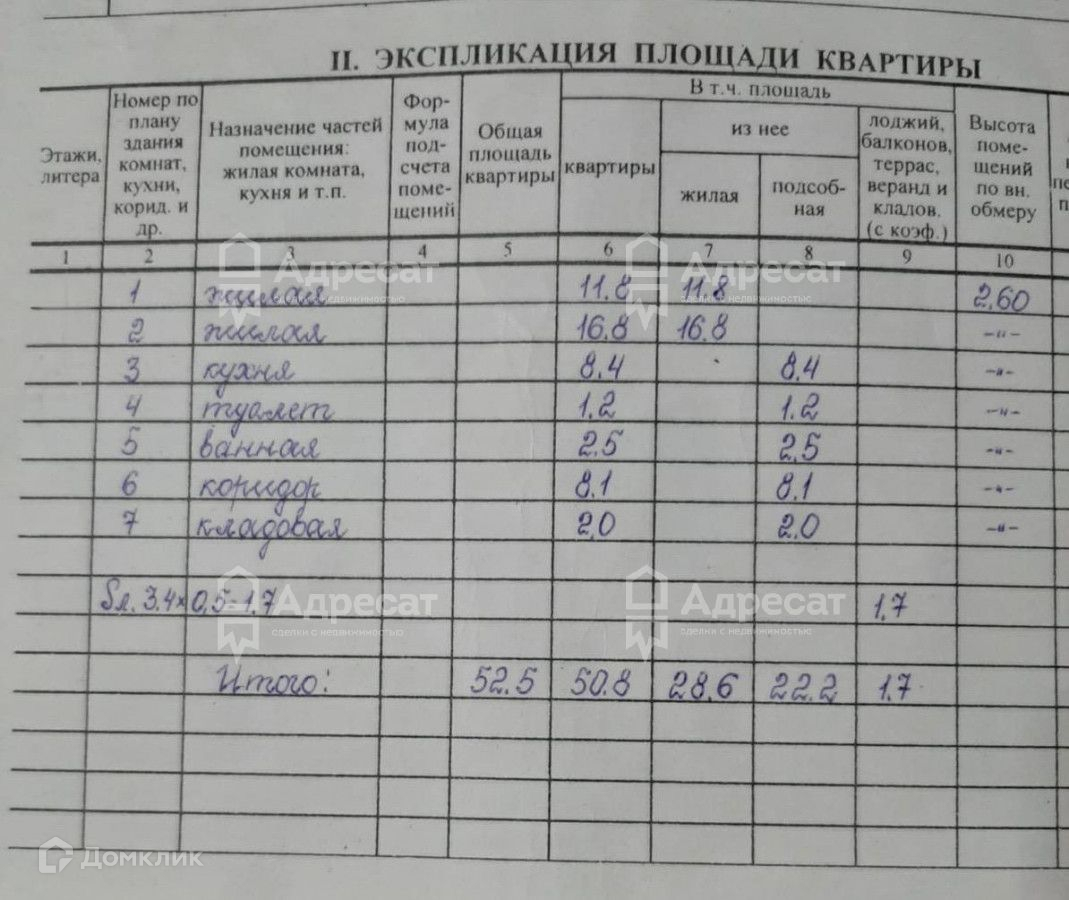 II. ЭКСПЛИКАЦИЯ ПЛОЩАДИ КВАРТИРЫ
Этажи, литера
Номер по плану здания комнат, кухни, корид. и др.
Назначение частей помещения: жилая комната, кухня и т.п.
Фор-мула под-счета поме-щений
Общая площадь квартиры
В т.ч. площадь
квартиры
из нее
жилая
подсоб-ная
лоджий, балконов, террас, веранд и кладов. (с коэф.)
Высота поме-щений по вн. обмеру
1 2 3 4 5 6 7 8 9 10
1 жилая 11.8 11.8 2,60
2 жилая 16.8 16.8 -"-
3 кухня 8,4 8,4 -"-
4 туалет 1.2 1.2 -"-
5 ванная 2,5 2,5 -"-
6 коридор 8.1 8.1 -"-
7 кладовая 2,0 2,0 -"-
Sл. 3.4×0,5-1,7 1,7
Итого: 52.5 50.8 28.6 22.2 1.7
Адресат
сделки с недвижимостью
Адресат
сделки с недвижимостью
Адресат
сделки с недвижимостью
Адресат
сделки с недвижимостью
Домклик